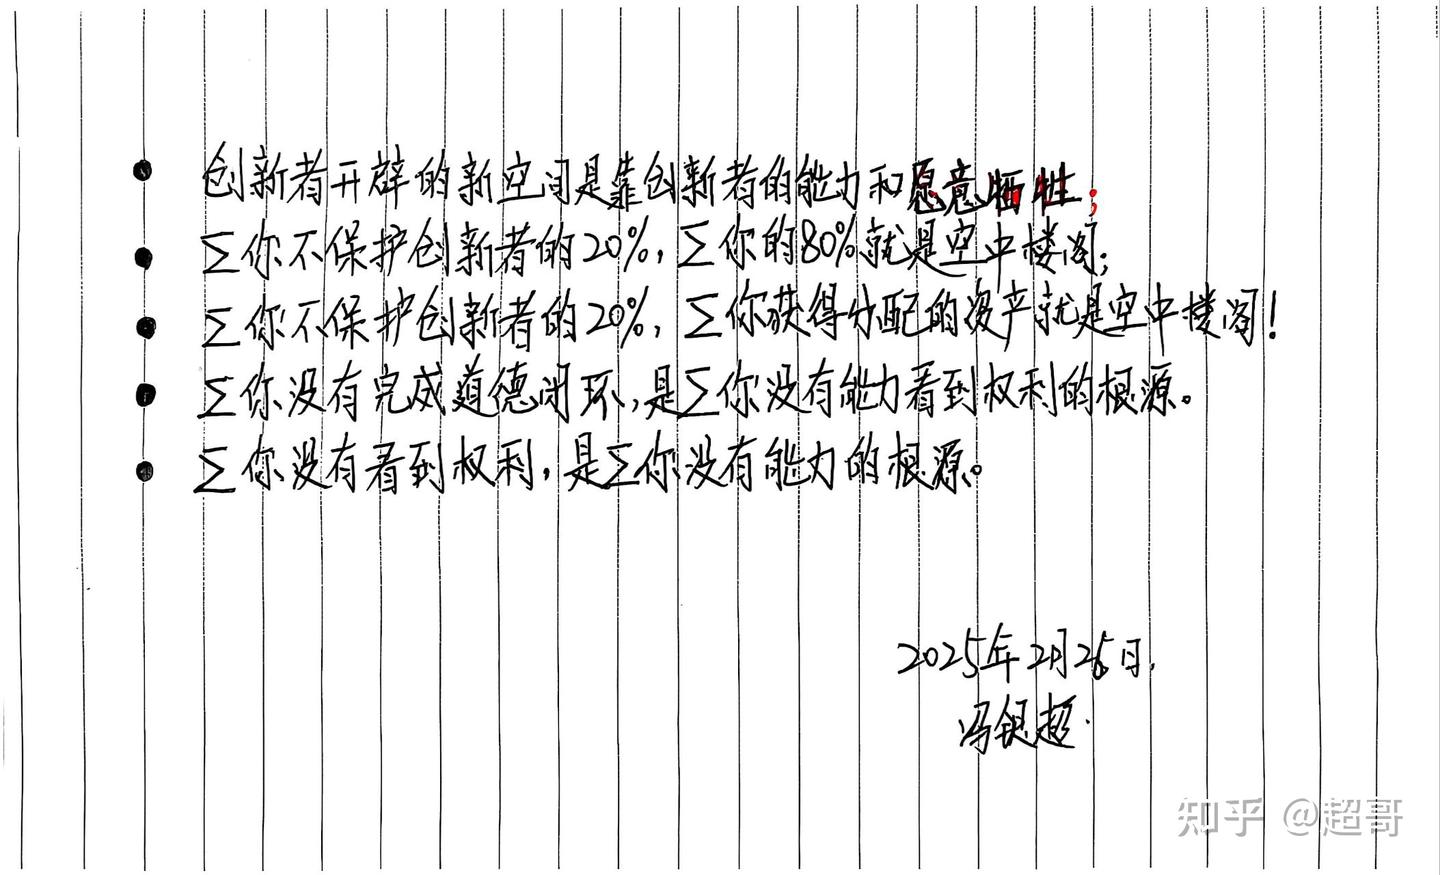 创新者开辟的新空间是靠创新者的能力和愿意牺牲;
∑你不保护创新者的20%,∑你的80%就是空中楼阁;
∑你不保护创新者的20%,∑你获得分配的资产就是空中楼阁!
∑你没有完成道德闭环,是∑你没有能力看到权利的根源。
∑你没有看到权利,是∑你没有能力的根源。
2025年2月26日.
冯银超.
知乎 @超哥